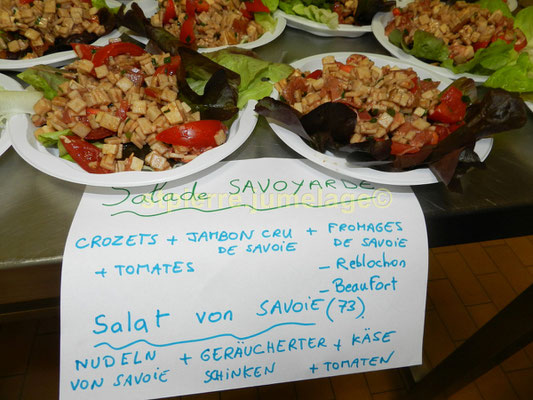 Salade SAVOYARDE
stpierre jumelage©
CROZETS + JAMBON CRU + FROMAGES
DE SAVOIE DE SAVOIE
+ TOMATES - Reblochon
- Beaufort
Salat von SAVOIE (73)
NUDELN + GERÄUCHERTER + KÄSE
VON SAVOIE SCHINKEN + TOMATEN